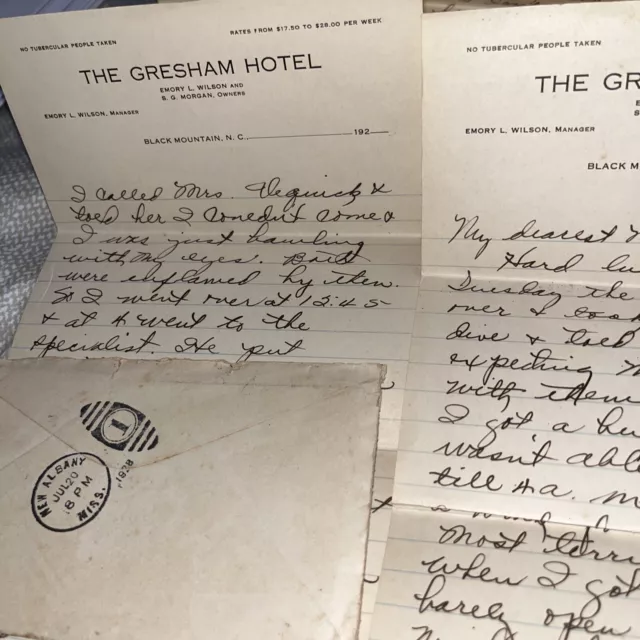 NO TUBERCULAR PEOPLE TAKEN
RATES FROM $17.50 TO $28.00 PER WEEK
THE GRESHAM HOTEL
EMORY L. WILSON AND
B. G. MORGAN, OWNERS
EMORY L. WILSON, MANAGER
BLACK MOUNTAIN, N. C. 192
I called Mrs. &
told her I couldn't come &
I was just howling
with my eyes. Both
were inflamed by then.
So I went over at 12:45
& at 4 went to the
specialist. He put
NO TUBERCULAR PEOPLE TAKEN
THE GR
EMORY L. WILSON, MANAGER
BLACK M
My dearest
Hard lu
Tuesday the
over & took
dive & told
expecting
with them
I got a
wasn't abl
till 4 a. m
most terri
when I got
barely open
1
NEW ALBANY
JUL 20
8 PM
MISS.
1928